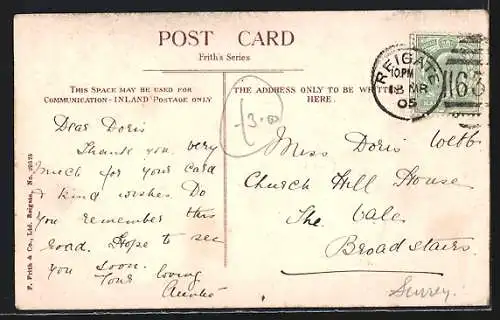 POST CARD
Frith's Series
THIS SPACE MAY BE USED FOR
COMMUNICATION - INLAND POSTAGE ONLY
THE ADDRESS ONLY TO BE WRITTEN
HERE.
REIGATE
10PM
MR
05
Dear Doris
Thank you very
much for your card
& kind wishes. Do
you remember this
road. Hope to see
you soon.
Your loving
Auntie
Miss Doris Webb
Church Hill House
The Vale
Broadstairs
Surrey
F. Frith & Co., Ltd. Reigate, No.